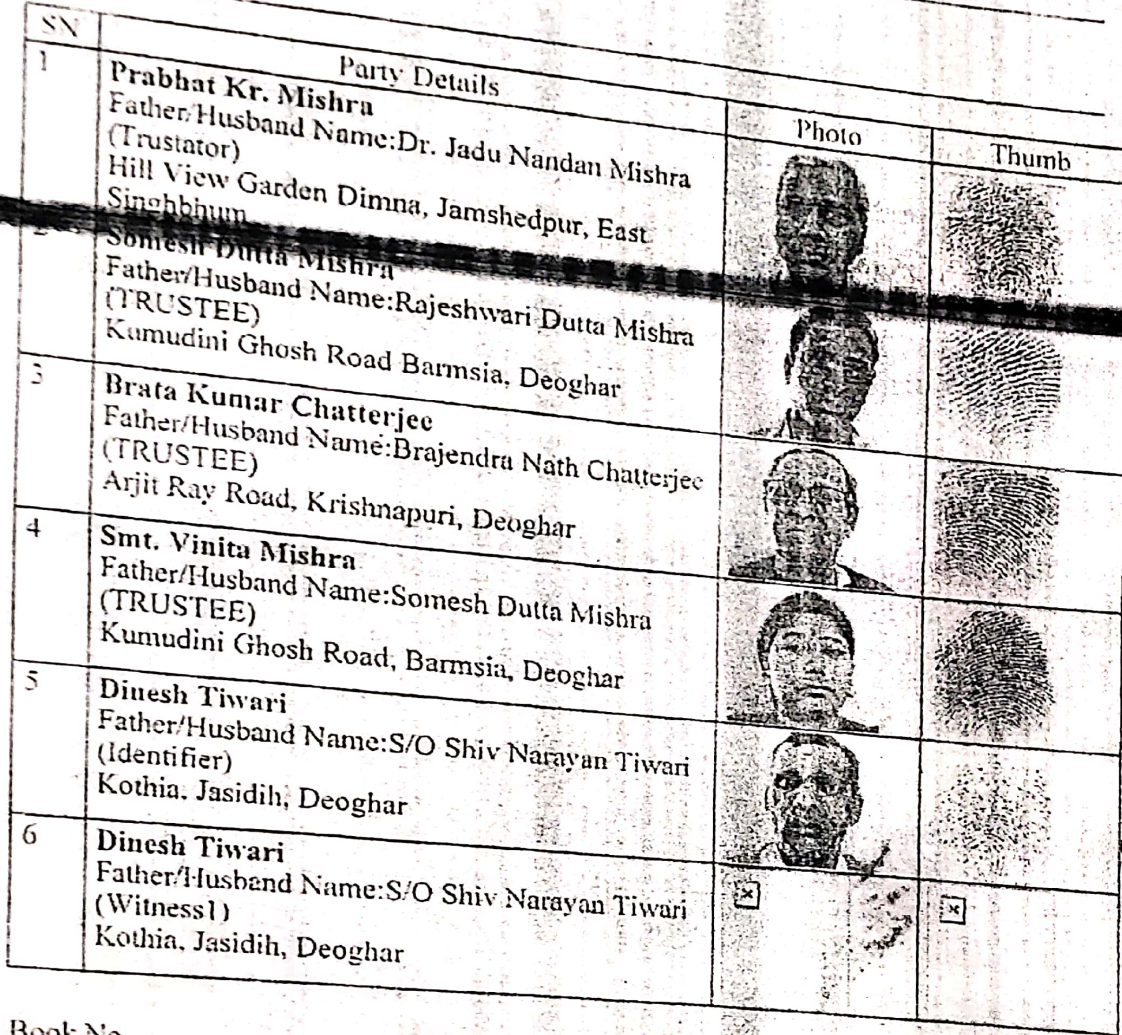 SN Party Details Photo Thumb
1 Prabhat Kr. Mishra
Father/Husband Name:Dr. Jadu Nandan Mishra
(Trustator)
Hill View Garden Dimna, Jamshedpur, East
Singhbhum
2 Somesh Dutta Mishra
Father/Husband Name:Rajeshwari Dutta Mishra
(TRUSTEE)
Kumudini Ghosh Road Barmsia, Deoghar
3 Brata Kumar Chatterjee
Father/Husband Name:Brajendra Nath Chatterjee
(TRUSTEE)
Arjit Ray Road, Krishnapuri, Deoghar
4 Smt. Vinita Mishra
Father/Husband Name:Somesh Dutta Mishra
(TRUSTEE)
Kumudini Ghosh Road, Barmsia, Deoghar
5 Dinesh Tiwari
Father/Husband Name:S/O Shiv Narayan Tiwari
(Identifier)
Kothia, Jasidih, Deoghar
6 Dinesh Tiwari
Father/Husband Name:S/O Shiv Narayan Tiwari
(Witness1)
Kothia, Jasidih, Deoghar
Book No